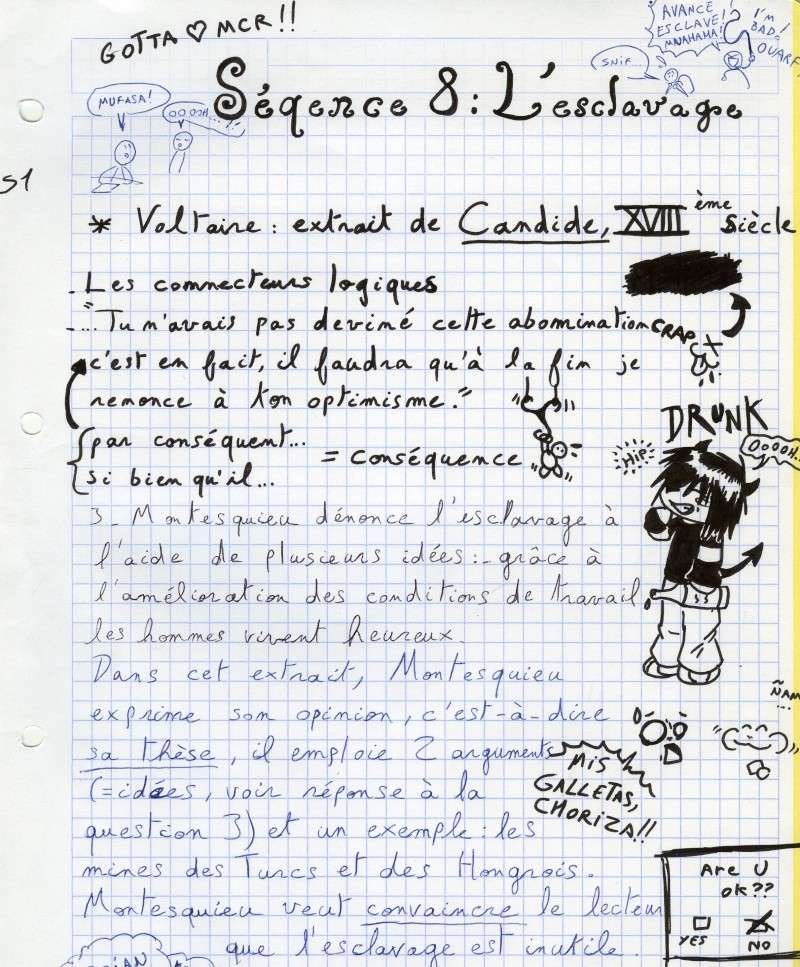 GOTTA ♡ MCR!!
AVANCE
ESCLAVE!
MNAHAHA!
I'M
BAD
OUARF,
SNIF...
MUFASA!
OOOOH...
Séqence 8: L'esclavage
S1
* Voltaire: extrait de Candide, XVIII ème siècle
- Les connecteurs logiques
- "...Tu n'avais pas deviné cette abomination
CRAP
c'est en fait, il faudra qu'à la fin je
renonce à ton optimisme."
par conséquent...
si bien qu'il...
= conséquence
DRUNK
HIP
OOOOH...
3_ Montesquieu dénonce l'esclavage à
l'aide de plusieurs idées:_grâce à
l'amélioration des conditions de travail
les hommes vivent heureux.
Dans cet extrait, Montesquieu
exprime son opinion, c'est-à-dire
sa thèse, il emploie 2 arguments
(=idées, voir réponse à la
question 3) et un exemple: les
mines des Turcs et des Hongrois.
Montesquieu veut convaincre le lecteur
que l'esclavage est inutile.
ÑAM
...
MIS
GALLETAS,
CHORIZA!!
Are U
ok??
YES
NO